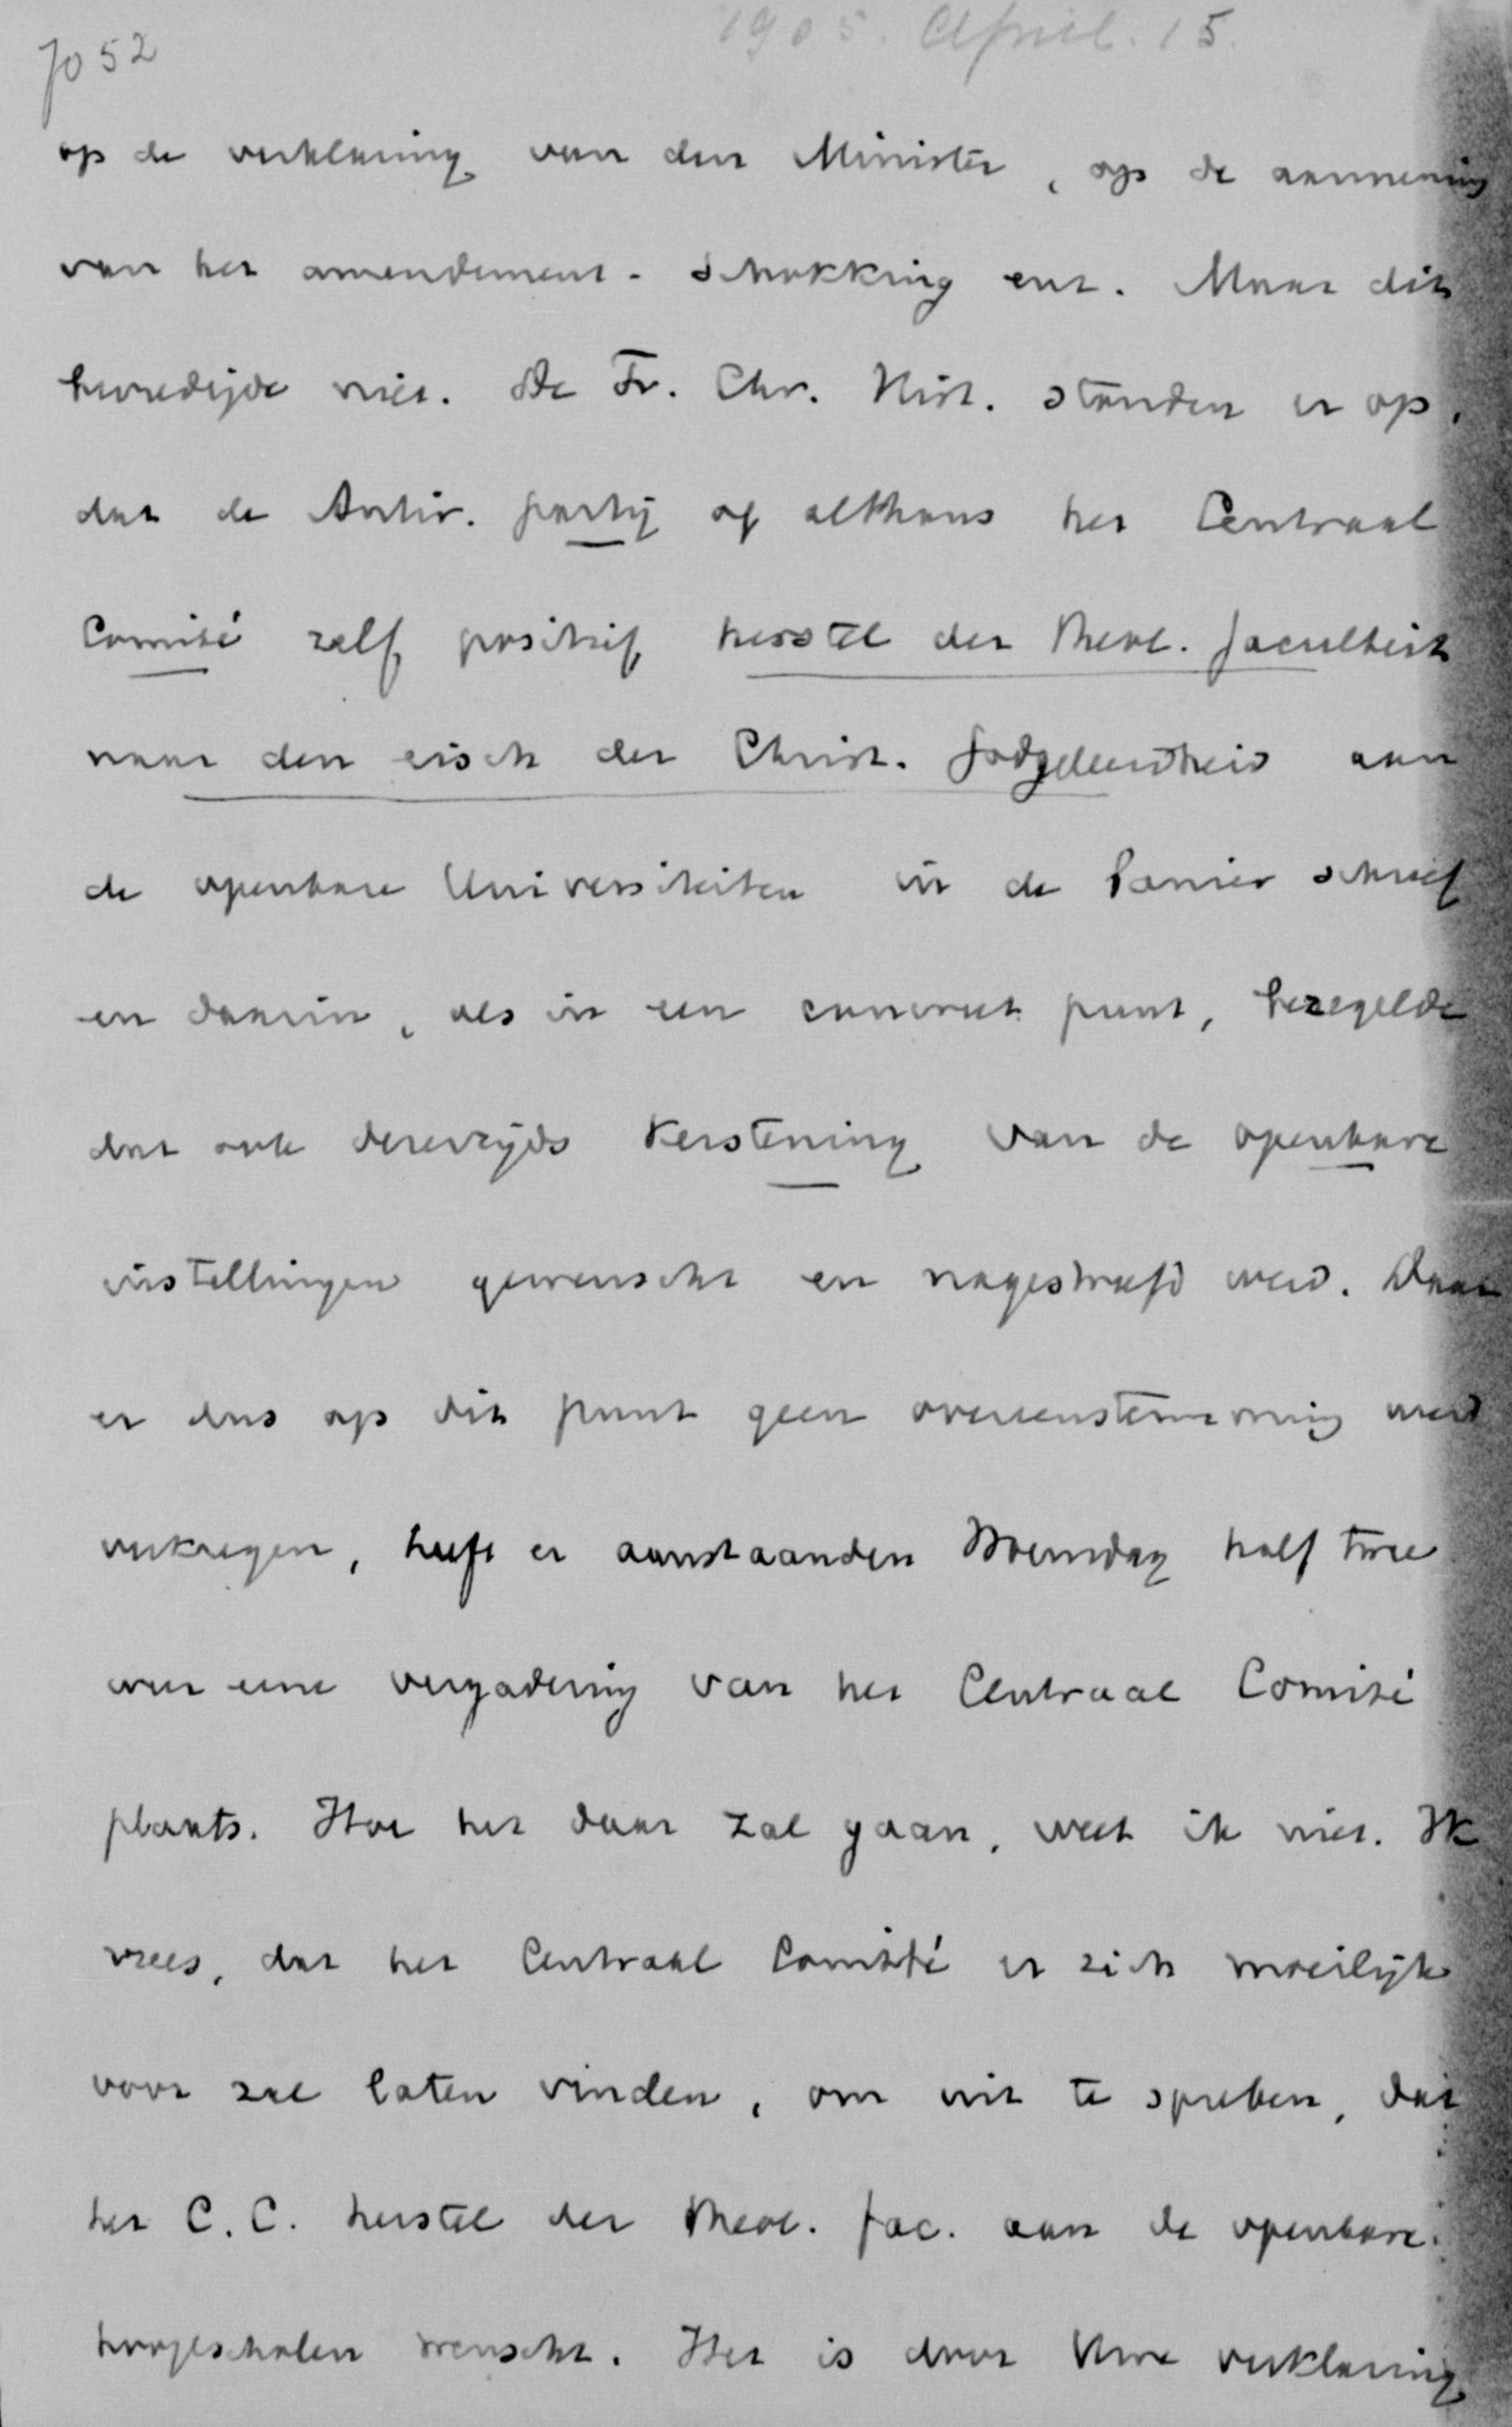 7052
1905. April. 15.
op de verklaring van den Minister, op de aanneming
van het amendement-Schokking enz. Maar dit
bevredigde niet. De Fr. Chr. Hist. stonden er op,
dat de Antir. partij of althans het Centraal
Comité zelf positief herstel der Theol. faculteit
naar den eisch der Christ. Godgeleerdheid aan
de openbare Universiteiten in de banier schreef
en daarin, als in een concreet punt, bezegelde
dat ook derzijds Kerstening van de openbare
instellingen gewenscht en nagestreefd werd. Daar
er dus op dit punt geen overeenstemming werd
verkregen, heeft er aanstaanden Woensdag half twee
weer eene vergadering van het Centraal Comité
plaats. Hoe het daar zal gaan, weet ik niet. Ik
vrees, dat het Centraal Comité er zich moeilijk
voor zal laten vinden, om uit te spreken, dat
het C.C. herstel der Theol. fac. aan de openbare
hoogescholen wenscht. Het is door Uwe verklaring